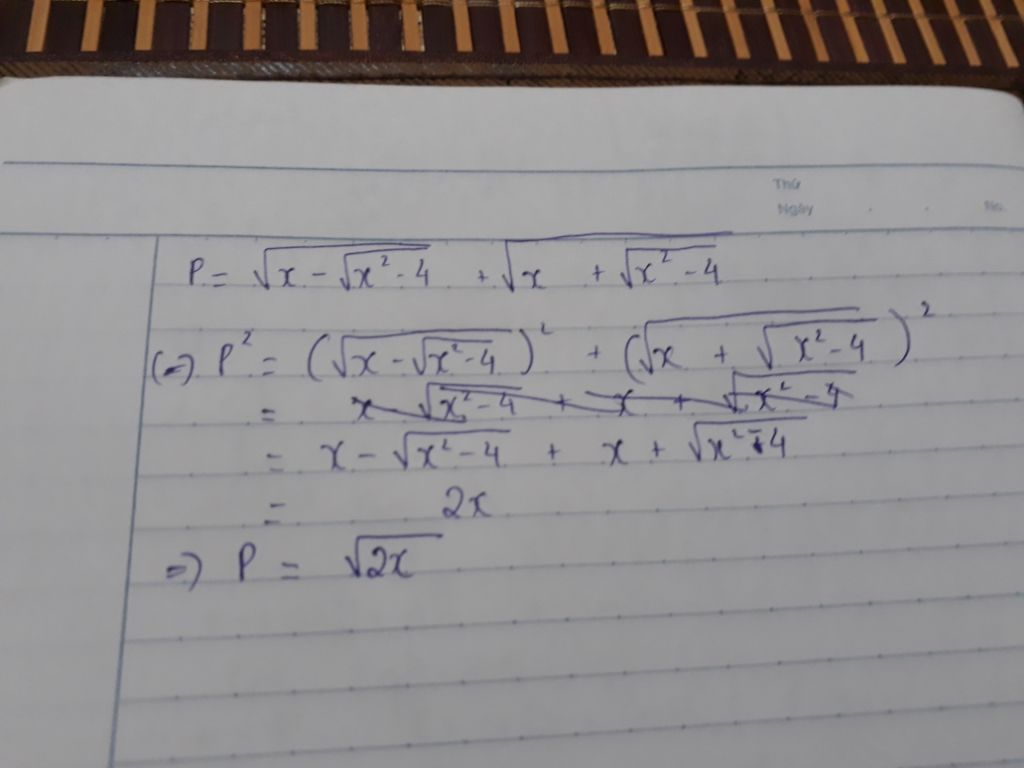 Thứ
Ngày No.
P = √(x - √(x² - 4)) + √(x + √(x² - 4))
(=) P² = (√(x - √(x² - 4)))² + (√(x + √(x² - 4)))²
= x - √(x² - 4) + x + √(x² - 4)
= x - √(x² - 4) + x + √(x² - 4)
= 2x
=) P = √(2x)